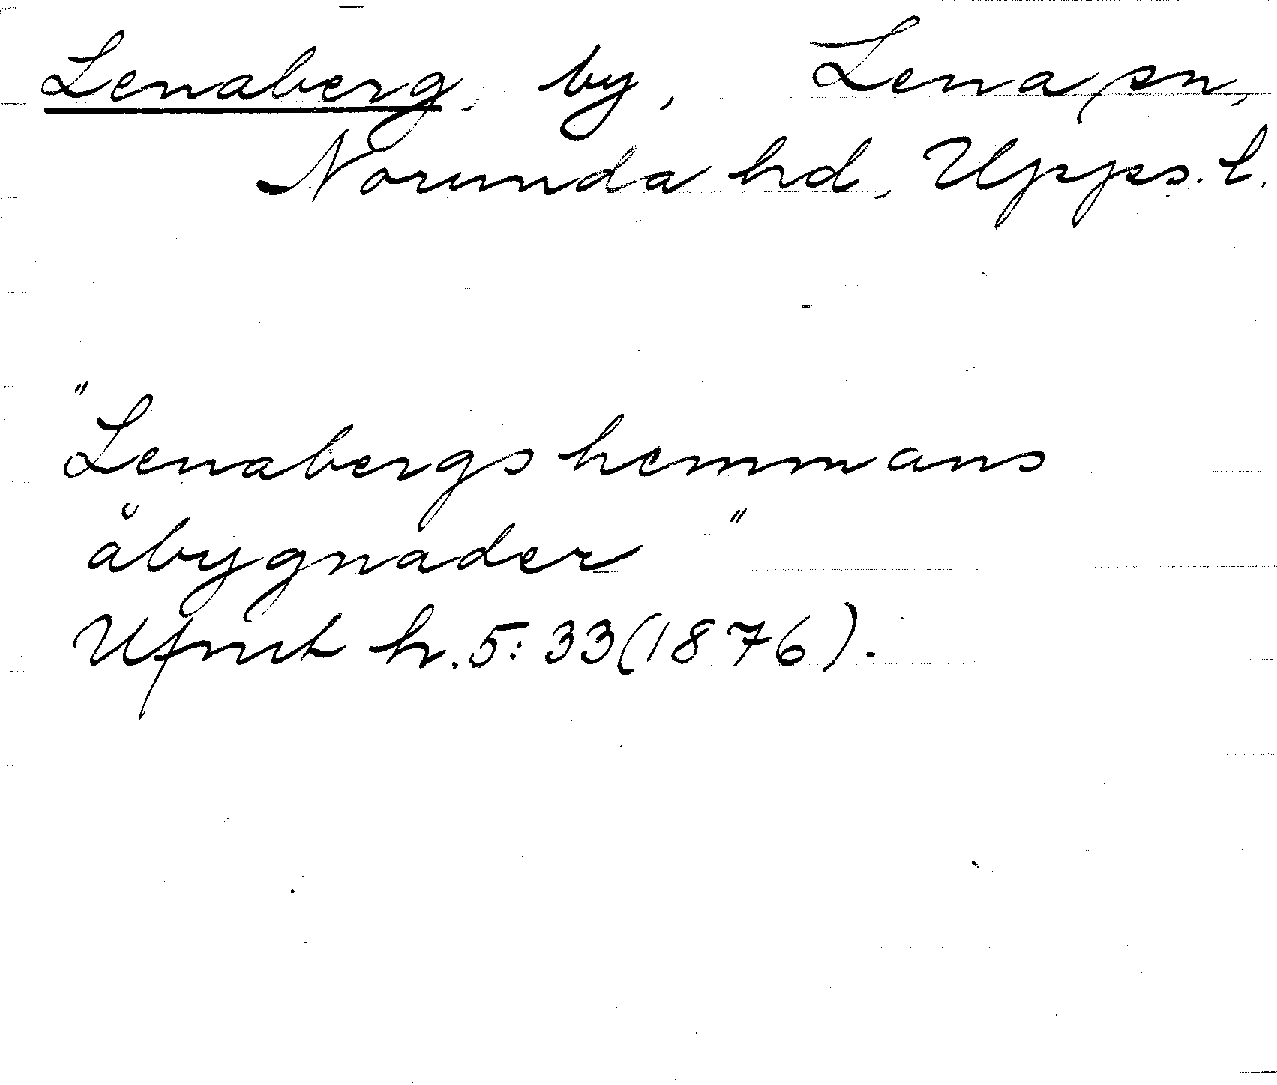 Lenaberg, by, Lena sn,
Norunda hd, Upps. l.
"Lenabergs hemmans
åbygnader"
Ufmt h. 5: 33 (1876).